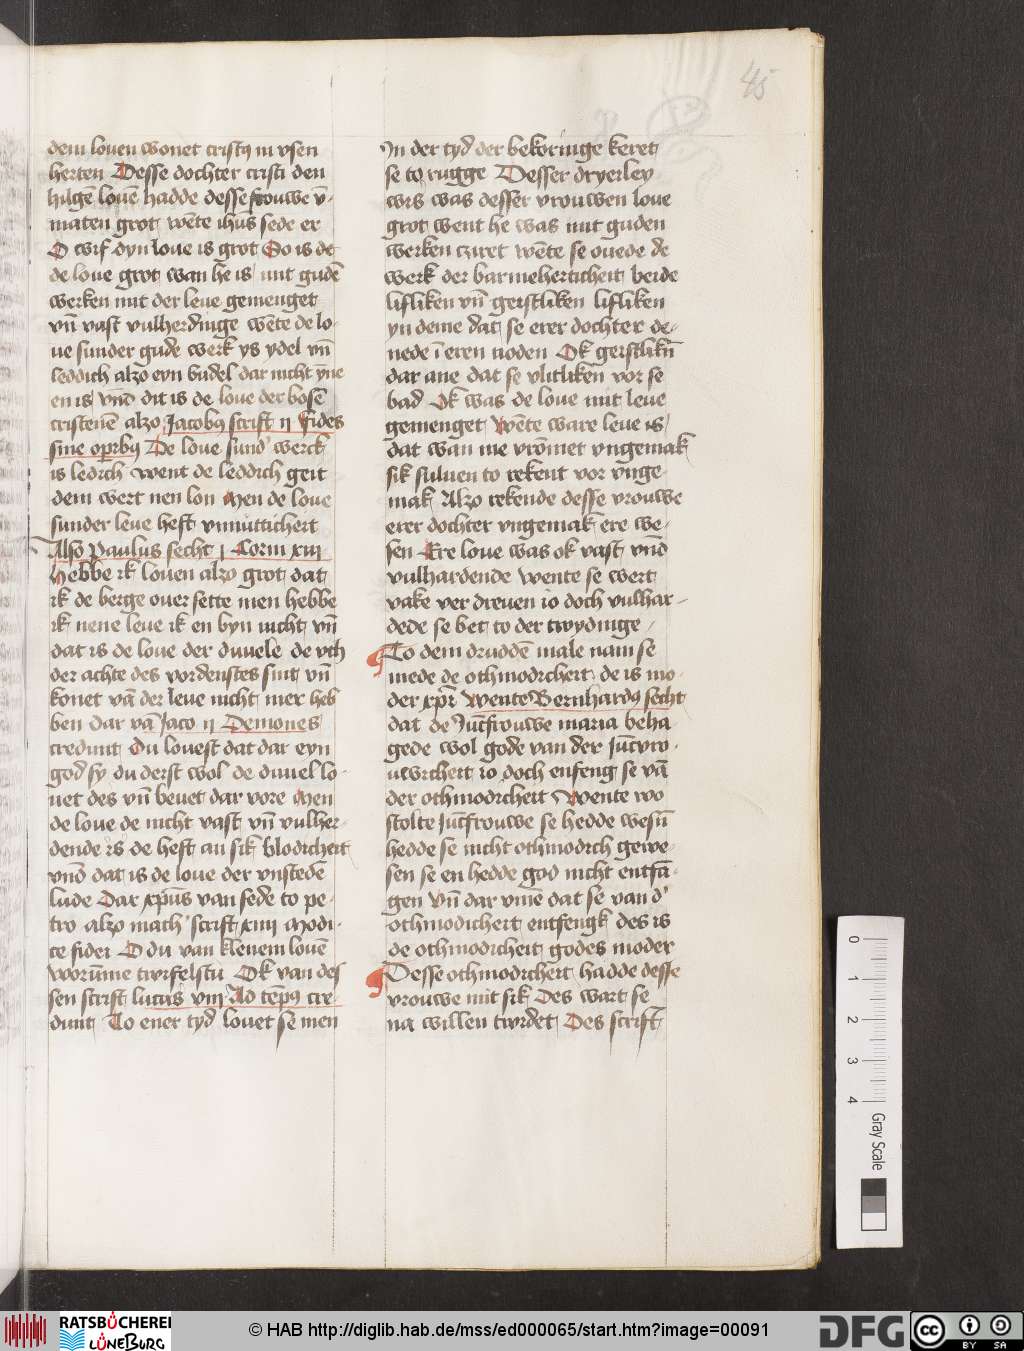 45
dem louen wonet cristꝯ in vsen
herten Desse dochter cristi den
hilgē louē hadde desse frouwe v̄-
maten grot wēte ihūs sede er
O wif dyn loue is grot So is de
de loue grot wan he is mit gudē
werken mit der leue gemenget
vn̄ vast vulherdinge wēte de lo-
ue sunder gude werk ys ydel vn̄
leddich alzo eyn budel dar nicht yne
en is vnd dit is de loue der bosē
cristenē alzo Jacobꝯ scrift ii Fides
sine oꝑibꝯ De loue sund' werck
is ledich went de leddich geit
dem wert nen lon Men de loue
sunder leue heft vnnutticheit
Also Paulus secht i Corin xiii
Hebbe ik louen alzo grot dat
ik de berge ouer sette men hebbe
ik nene leue ik en byn nicht vn̄
dat is de loue der duuele de vth
der achte des vordenstes sint vn̄
konet vā der leue nicht mer heb
ben dar vā Jaco ii Demones
credunt Du louest dat dar eyn
god sy du deist wol de duuel lo-
uet des vn̄ beuet dar vore Men
de loue de nicht vast vn̄ vulher-
dende is de heft an sik blodicheit
vnd dat is de loue der vnstedē
lude Dar xp̄us van sede to pe-
tro alzo math' scrift xiiii Modi-
ce fidei O du van klenem louē
worūme twifelstu Ok van des
sen scrift lucas viii Ad tēpꝯ cre-
dunt To ener tyd louet se men
In der tyd der bekoringe keret
se to rugge Desser dryerley
wis was desser vrouwen loue
grot went he was mit guden
werken cziret wēte se ouede de
werk der barmeherticheit beide
lifliken vn̄ geistliken lifliken
yn deme dat se erer dochter de-
nede ī eren noden Ok geistlikn̄
dar ane dat se vlitliken vor se
bad Ok was de loue mit leue
gemenget Wēte ware leue is
dat wan me vromet vngemak
sik suluen to rekent vor vnge
mak Alzo rekende desse vrouwe
erer dochter vngemak ere we-
sen Ere loue was ok vast vnd
vulhardende Wente se wert
vake ver dreuen io doch vulhar-
dede se bet to der twydinge
To dem druddē male nam se
mede de othmodicheit de is mo-
der xp̄i Wente Bernhardꝯ secht
dat de Jūcfrouwe maria beha
gede wol gode van der Jūcvro-
uwicheit io doch enfeng se vā
der othmodicheit Wente wo
stolte Jūcfrouwe se hedde wesn̄
hedde se nicht othmodich gewe-
sen se en hedde god nicht entfā-
gen Vn̄ dar vmē dat se van d'
othmodichert entfengk des is
de othmodicheit godes moder
Desse othmodicheit hadde desse
vrouwe mit sik Des wart se
na willen twidet Des scrift
0
1
2
3
4
Gray Scale
RATSBÜCHEREI
LÜNEBURG
© HAB http://diglib.hab.de/mss/ed000065/start.htm?image=00091
DFG
cc
BY SA